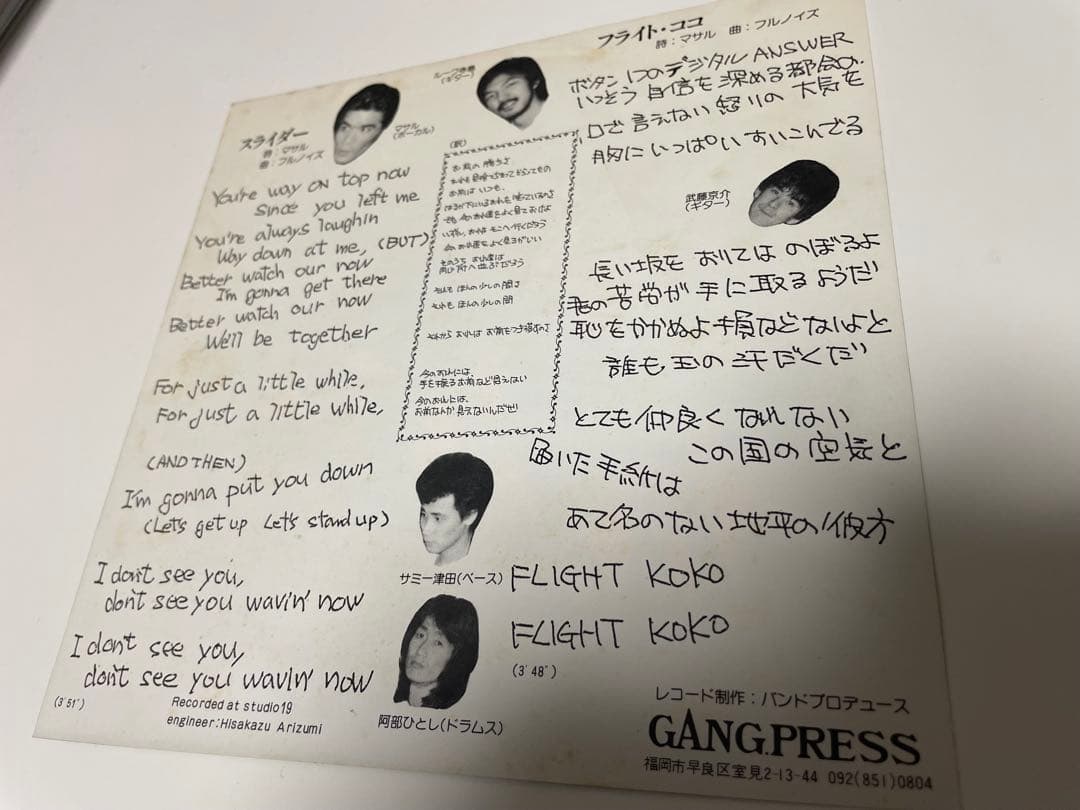 スライダー
詩：マサル
曲：フルノイズ
マサル
(ボーカル)
You're way on top now
Since you left me
You're always laughin
Way down at me, (BUT)
Better watch our now
I'm gonna get there
Better watch our now
We'll be together
For just a little while,
For just a little while,
(AND THEN)
I'm gonna put you down
(Let's get up Let's stand up)
I don't see you,
don't see you wavin' now
I don't see you,
don't see you wavin' now
(3'51")
Recorded at studio19
engineer:Hisakazu Arizumi
(ギター)
(訳)
お前の勝ちよ
お前はいつも、
そのうち おれ達は
同じ所へ並ぶだろう
それも ほんの少しの間さ
それも ほんの少しの間
今のおれには、
手を振るお前など見えない
今のおれには、
お前なんか見えないんだぜ!
サミー津田(ベース)
阿部ひとし(ドラムス)
フライト・ココ
詩：マサル 曲：フルノイズ
ボタン1つのデジタル ANSWER
いっそう 自信を 深める都会の
口で言えない 怒りの 大気を
胸に いっぱい すいこんでる
武藤京介
(ギター)
長い坂を おりては のぼるよ
君の苦労が 手に取る ようだ
恥をかかぬよ 損などないよと
誰も 玉の 汗だくだ
とても 仲良く なれない
この国の 空気と
届いた 手紙は
あて名のない 地平の 彼方
FLIGHT KOKO
FLIGHT KOKO
(3'48")
レコード制作：バンドプロデュース
GANG.PRESS
福岡市早良区室見2-13-44 092(851)0804